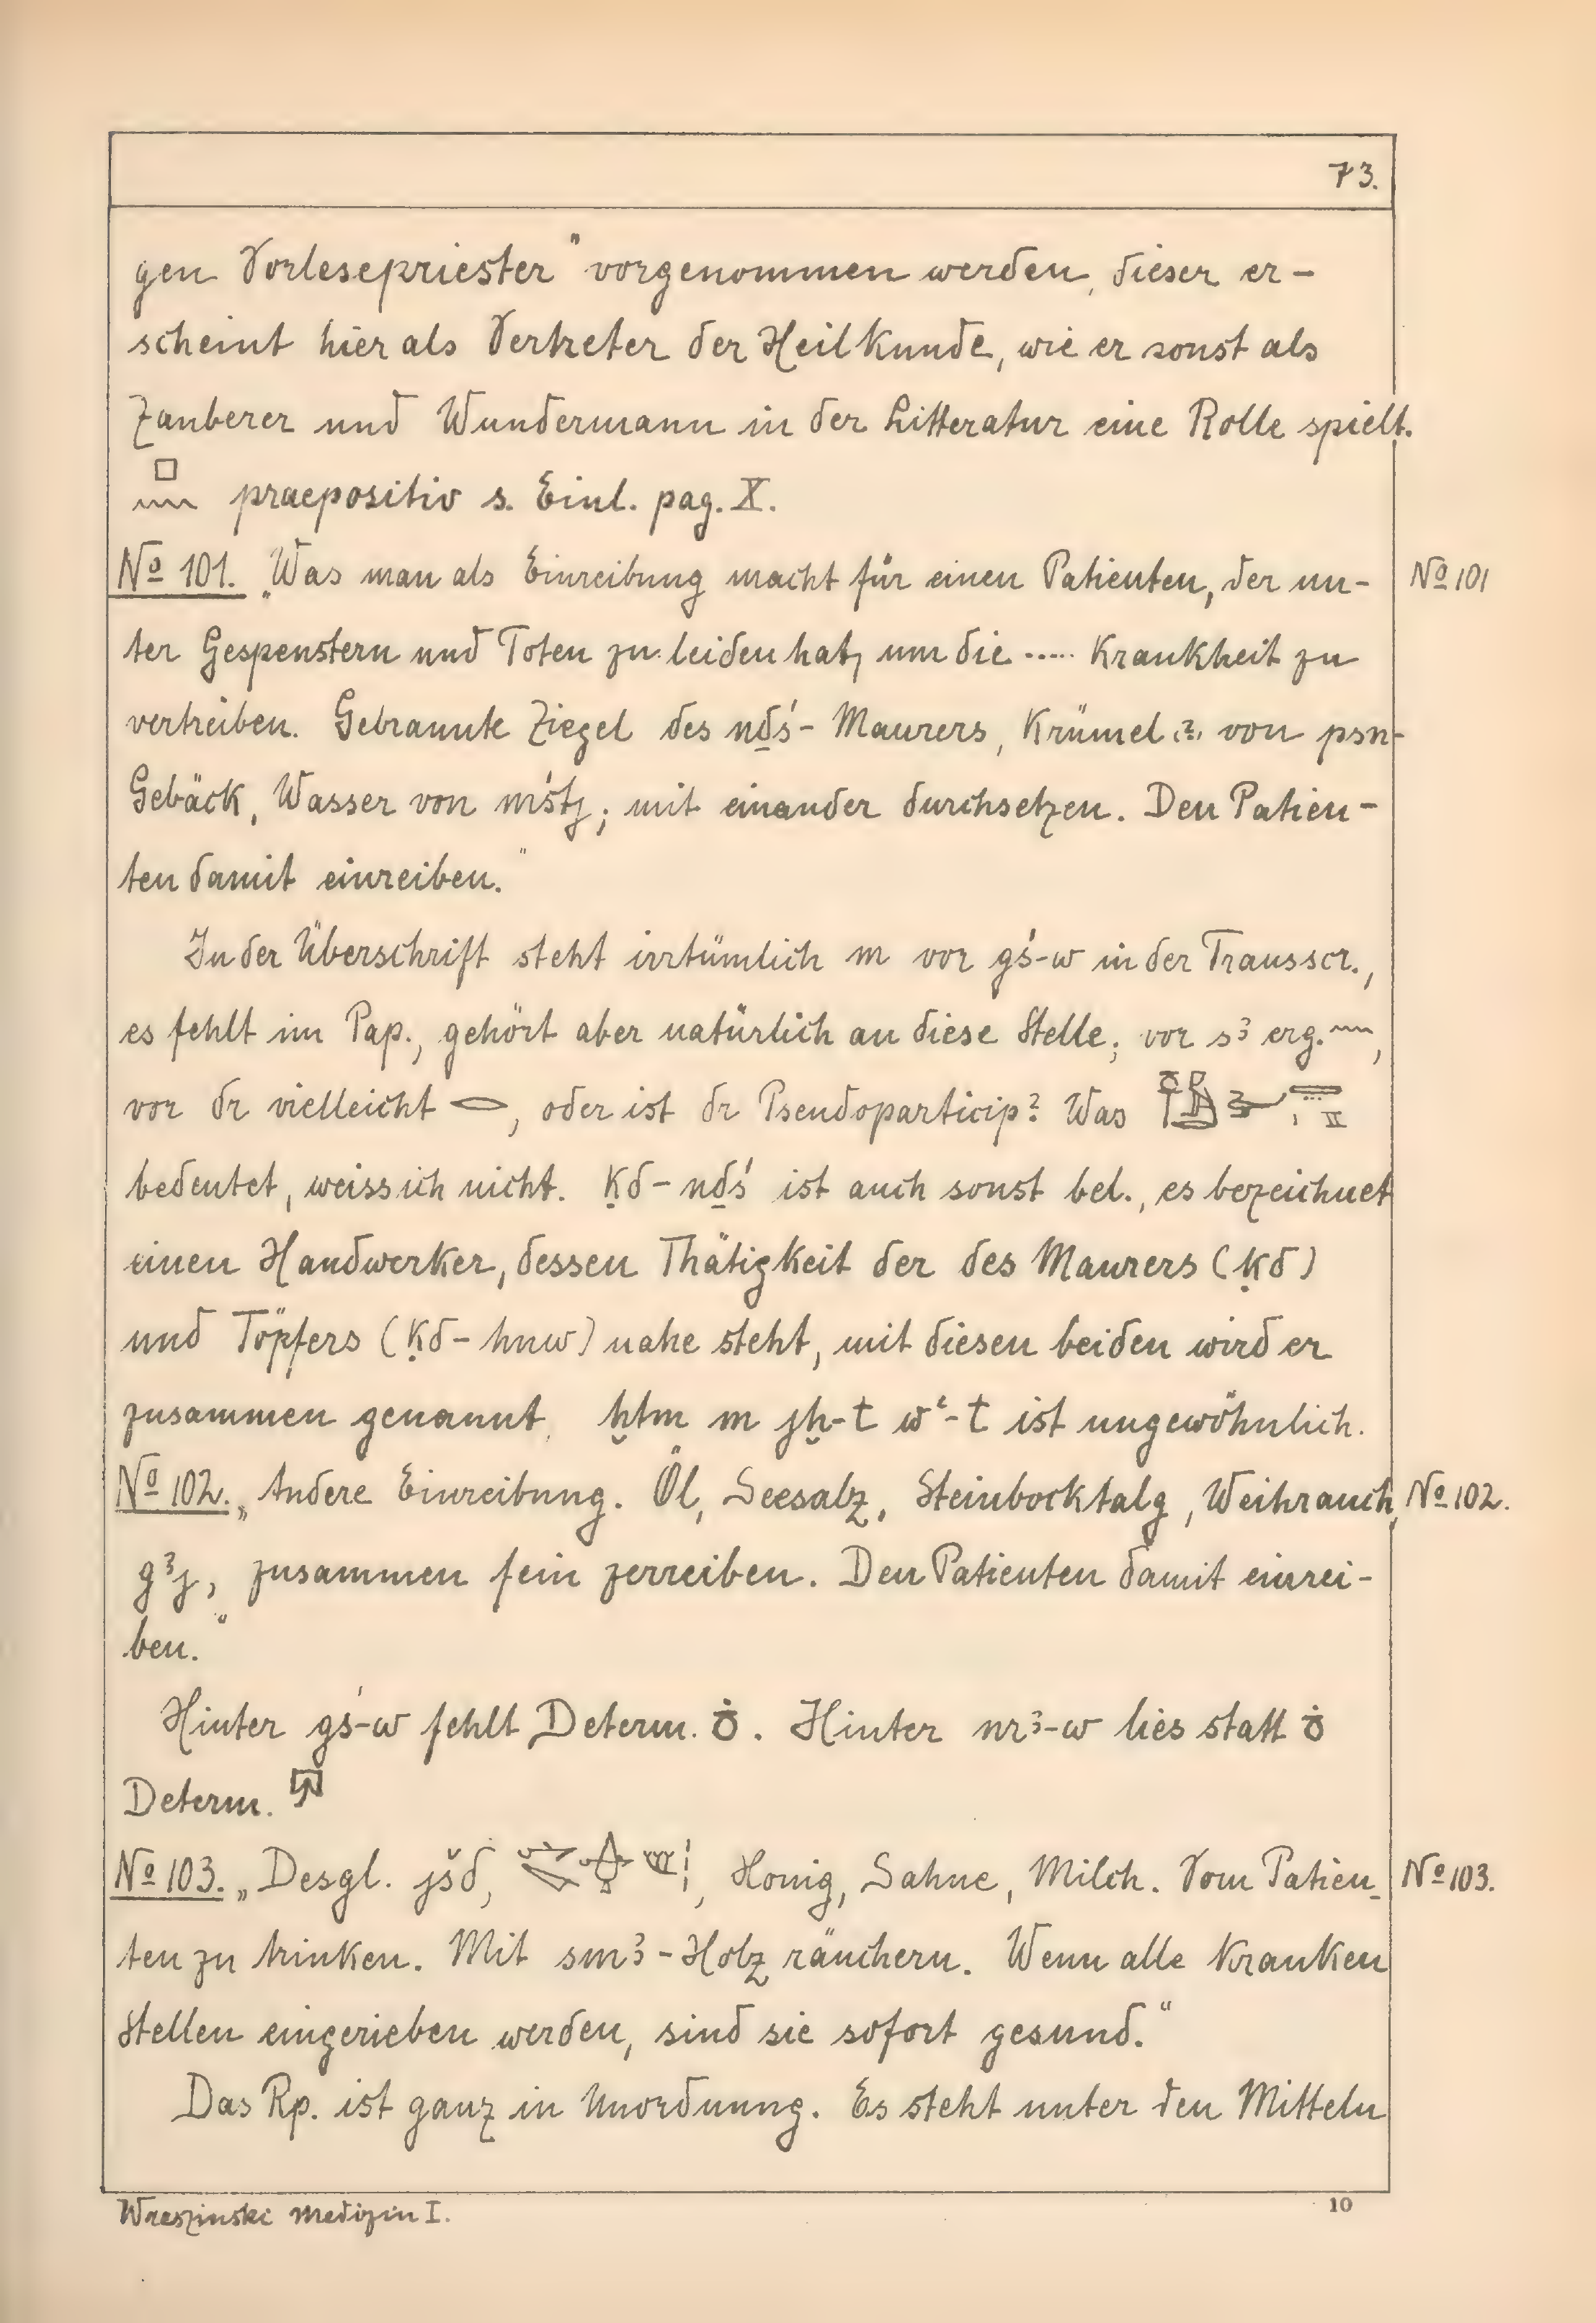 73.
gen Vorlesepriester" vorgenommen werden, dieser er-
scheint hier als Vertreter der Heilkunde, wie er sonst als
Zauberer und Wundermann in der Litteratur eine Rolle spielt.
praepositiv s. Einl. pag. X.
No 101. „Was man als Einreibung macht für einen Patienten, der un- No 101
ter Gespenstern und Toten zu leiden hat, um die ..... Krankheit zu
vertreiben. Gebrannte Ziegel des nḏś-Maurers, Krümel(?) von psn-
Gebäck, Wasser von mśtj; mit einander durchsetzen. Den Patien-
ten damit einreiben."
In der Überschrift steht irrtümlich m vor gś-w in der Transscr.,
es fehlt im Pap., gehört aber natürlich an diese Stelle; vor sꜣ erg. 𓈖,
vor dr vielleicht 𓂋, oder ist dr Pseudoparticip? Was
bedeutet, weiss ich nicht. ḳd-nḏś ist auch sonst bel., es bezeichnet
einen Handwerker, dessen Thätigkeit der des Maurers (ḳd)
und Töpfers (ḳd-hnw) nahe steht, mit diesen beiden wird er
zusammen genannt. ḫtm m jḫ-t wꜥ-t ist ungewöhnlich.
No 102. „Andere Einreibung. Öl, Seesalz, Steinbocktalg, Weihrauch, No 102.
gꜣj, zusammen fein zerreiben. Den Patienten damit einrei-
ben."
Hinter gś-w fehlt Determ. . Hinter nrꜣ-w lies statt
Determ.
No 103. „Desgl. jšd, , Honig, Sahne, Milch. Vom Patien- No 103.
ten zu trinken. Mit smꜣ-Holz räuchern. Wenn alle kranken
Stellen eingerieben werden, sind sie sofort gesund."
Das Rp. ist ganz in Unordnung. Es steht unter den Mitteln
Wreszinski Medizin I. 10